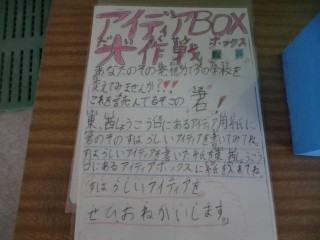 アイディアBOX
ボックス
大作戦
あなたのその発想力でこの学校を
変えてみませんか???
これを読んでるそこの 君!
東昇しょうこう口にあるアイディア用紙に
君のそのすばらしいアイディアを書いてみてね。
すばらしいアイディアを書いた紙を東昇しょうこう
口にあるアイディアボックスに紙を入れてね
すばらしいアイディアを
ぜひおねがいします。